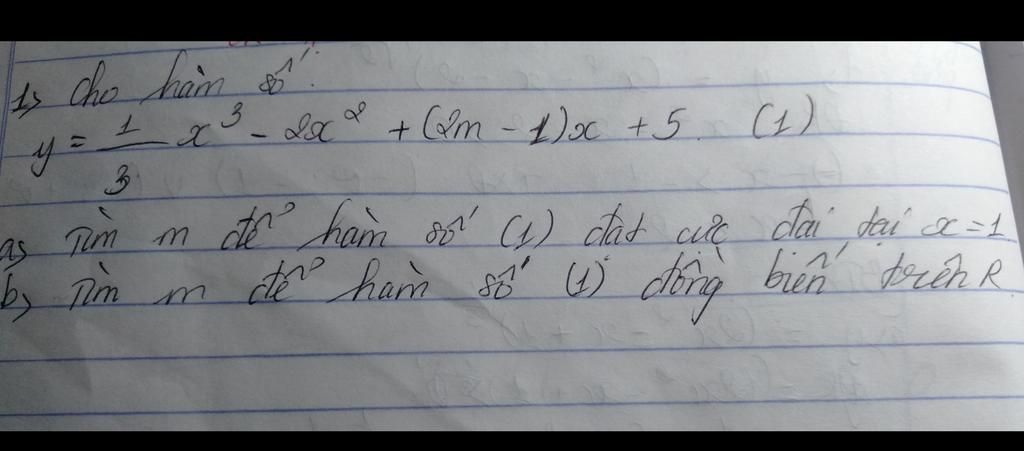 1, Cho hàm số:
y = 1/3 x³ - 2x² + (2m - 1)x + 5. (1)
a, Tìm m để hàm số (1) đạt cực đại tại x = 1
b, Tìm m để hàm số (1) đồng biến trên R.